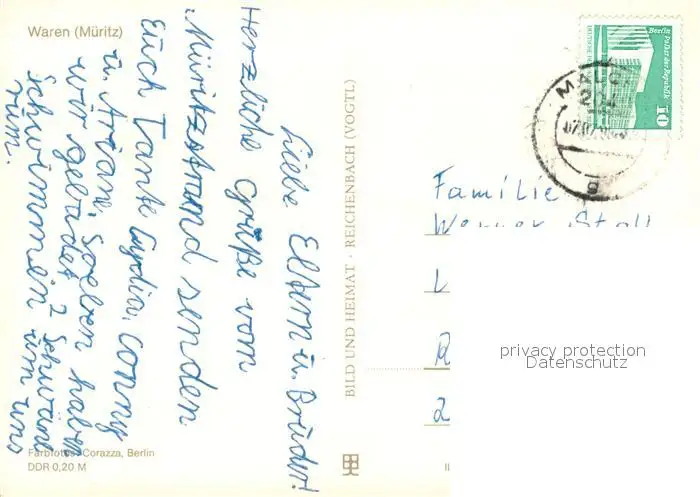 Waren (Müritz)
Liebe Eltern u. Brüder!
Herzliche Grüße vom
Müritzstrand senden
Euch Tante Lydia, Conny
u. Ariane. Soeben haben
wir gebadet, 2 Schwäne
schwimmen um uns
rum.
Farbfotos: Corazza, Berlin
DDR 0,20 M
BILD UND HEIMAT · REICHENBACH (VOGTL)
Berlin Palast der Republik
10
Familie
Werner Stoll
L
R
2
privacy protection
Datenschutz